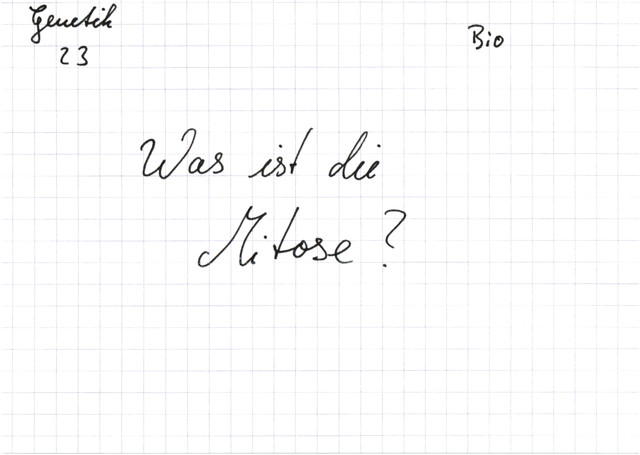 Genetik
23
Bio
Was ist die
Mitose?